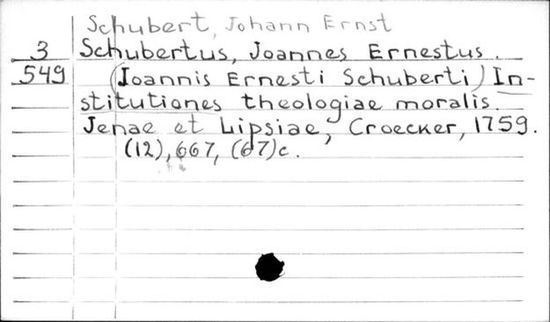 Schubert, Johann Ernst
3 Schubertus, Joannes Ernestus.
549 (Joannis Ernesti Schuberti) In-
stitutiones theologiae moralis.
Jenae et Lipsiae, Croecker, 1759.
(12), 667, (67)c.